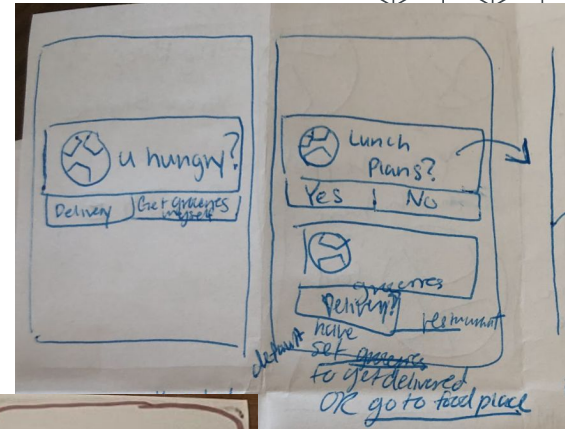 u hungry?
Delivery
Get groceries
myself
Lunch
Plans?
Yes
No
groceries
Delivery?
restaurant
have
default
set groceries
to get delivered
OR go to food place